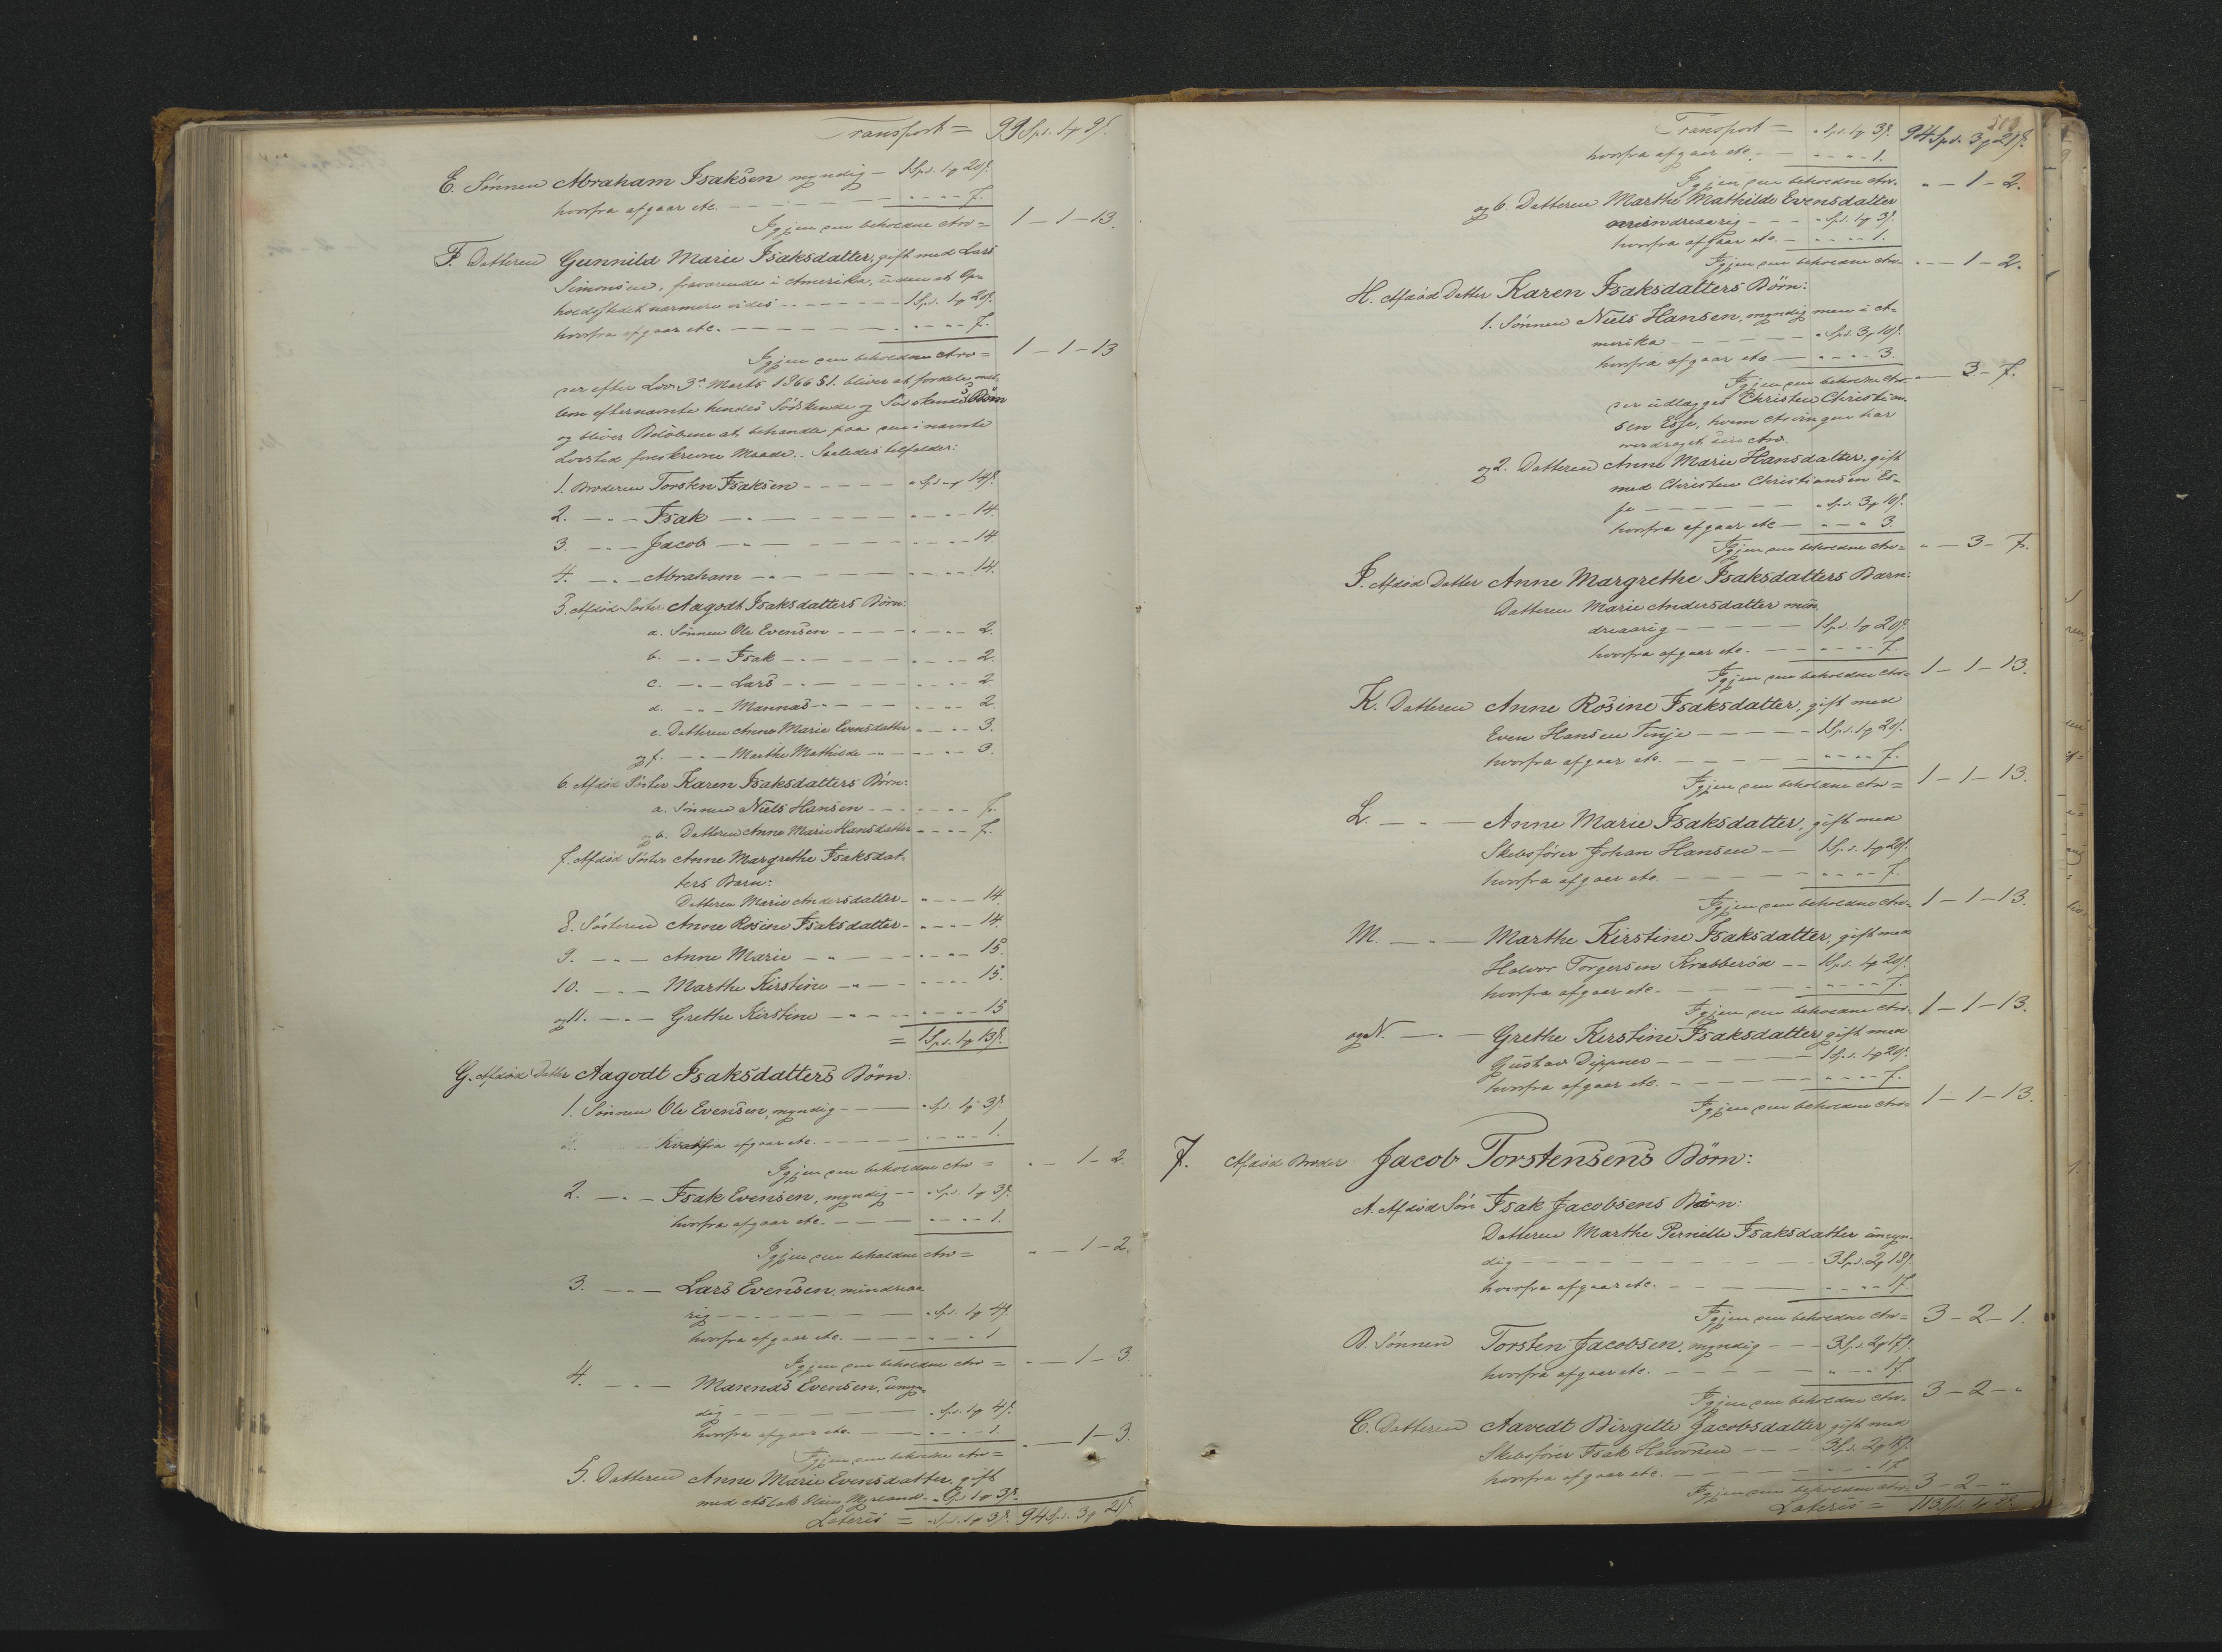 Transport = 99 Spd. 1 ϟ 9 ß.
E. Sønnen Abraham Isaksen myndig — 1 Spd. 1 ϟ 20 ß.
hvorfra afgaar etc. — — — — „ — „ — 7.
Igjen den beholdne Arv = 1 — 1 — 13.
F. Datteren Gunnild Marie Isaksdatter, gift med Lars
Simonsen, fraværende i Amerika, uden at Op=
holdsstedet nærmere vides — — — 1 Spd. 1 ϟ 20 ß.
hvorfra afgaar etc. — — — — „ — „ — 7.
Igjen den beholdne Arv = 1 — 1 — 13
der efter Lov 3die Marts 1866 § 1. bliver at fordele mel=
lem efternævnte hendes Sødskende og Sødskendes Børn
og bliver Beløbene at behandle paa den i nævnte
Lovsted foreskrevne Maade. Saaledes tilfalder:
1. Broderen Torsten Isaksen — — — „ Spd. „ ϟ 14 ß.
2. — „ — Isak — „ — — — „ — „ — 14.
3. — „ — Jacob — „ — — — „ — „ — 14
4. — „ — Abraham — „ — — — „ — „ — 14.
5. Afdød Søster Aagodt Isaksdatters Børn:
a. Sønnen Ole Evensen — — — „ — „ — 2.
b. — „ — Isak — „ — — — „ — „ — 2.
c. — „ — Lars — „ — — — „ — „ — 2
d. — „ — Mannas — „ — — — „ — „ — 2.
e. Datteren Anne Marie Evensdatter „ — „ — 3.
og f. — „ — Marthe Mathilde — „ — „ — „ — 3.
6. Afdød Søster Karen Isaksdatters Børn:
a. Sønnen Niels Hansen — — — „ — „ — 7.
og b. Datteren Anne Marie Hansdatter „ — „ — 7.
7. Afdød Søster Anne Margrethe Isaksdat=
ters Barn:
Datteren Marie Andersdatter — „ — „ — 14.
8. Søsteren Anne Rosine Isaksdatter — „ — „ — 14.
9. — „ — Anne Marie — „ — — „ — „ — 15.
10. — „ — Marthe Kirstine — „ — „ — „ — 15.
og 11. — „ — Grethe Kirstine — „ — „ — „ — 15
= 1 Spd. 1 ϟ 13 ß.
G. Afdød Datter Aagodt Isaksdatters Børn:
1. Sønnen Ole Evensen, myndig — — „ Spd. 1 ϟ 3 ß.
hvorfra afgaar etc. — — — „ — „ — 1.
Igjen den beholdne Arv = „ — 1 — 2.
2. — „ — Isak Evensen, myndig — — „ Spd. 1 ϟ 3 ß.
hvorfra afgaar etc. — — — „ — „ — 1.
Igjen den beholdne Arv = „ — 1 — 2.
3. — „ — Lars Evensen, mindreaa=
rig — — — — — „ Spd. 1 ϟ 4 ß.
hvorfra afgaar etc. — — — „ — „ — 1
Igjen den beholdne Arv = „ — 1 — 3
4. — „ — Mannas Evensen, umyn=
dig — — — — — „ Spd. 1 ϟ 4 ß.
hvorfra afgaar etc. — — — „ — „ — 1.
Igjen den beholdne Arv = „ — 1 — 3.
5. Datteren Anne Marie Evensdatter, gift
med Aslak Olsen Myrland — „ Spd. 1 ϟ 3 ß.
Lateris = „ Spd. 1 ϟ 3 ß. 94 Spd. 3 ϟ 21 ß.
Transport = „ Spd. 1 ϟ 3 ß. 94 Spd. 3 ϟ 21 ß.
hvorfra afgaar etc. — — „ — „ — 1.
Igjen den beholdne Arv = „ — 1 — 2.
og 6. Datteren Marthe Mathilde Evensdatter
mindreaarig — — — „ Spd. 1 ϟ 3 ß.
hvorfra afgaar etc. — „ — „ — 1.
Igjen den beholdne Arv = „ — 1 — 2.
H. Afdød Datter Karen Isaksdatters Børn:
1. Sønnen Niels Hansen, myndig men i A=
merika — — — — „ Spd. 3 ϟ 10 ß.
hvorfra afgaar etc — „ — „ — 3.
Igjen den beholdne Arv = „ — 3 — 7.
der udlægges Christen Christian=
sen Esje, hvem Arvingen har
overdraget sin Arv.
og 2. Datteren Anne Marie Hansdatter, gift
med Christen Christiansen Es=
je — — — — „ Spd. 3 ϟ 10 ß.
hvorfra afgaar etc — „ — „ 3.
Igjen den beholdne Arv = „ — 3 — 7.
I. Afdød Datter Anne Margrethe Isaksdatters Barn:
Datteren Marie Andersdatter min=
dreaarig — — — — 1 Spd. 1 ϟ 20 ß.
hvorfra afgaar etc. — — „ — „ — 7.
Igjen den beholdne Arv = 1 — 1 — 13.
K. Datteren Anne Rosine Isaksdatter, gift med
Even Hansen Tinje — — — 1 Spd. 1 ϟ 20 ß.
hvorfra afgaar etc. — — — „ — „ — 7.
Igjen den beholdne Arv = 1 — 1 — 13.
L. — „ — Anne Marie Isaksdatter, gift med
Skibsfører Johan Hansen — — 1 Spd. 1 ϟ 20 ß.
hvorfra afgaar etc. — — — „ — „ — 7.
Igjen den beholdne Arv = 1 — 1 — 13.
M. — „ — Marthe Kirstine Isaksdatter, gift med
Halvor Torgersen Krabberød — — 1 Spd. 1 ϟ 20 ß.
hvorfra afgaar etc. — — — „ — „ — 7.
Igjen den beholdne Arv = 1 — 1 — 13.
og N. — „ — Grethe Kirstine Isaksdatter gift med
Gustav Dippner — — — — 1 Spd. 1 ϟ 20 ß.
hvorfra afgaar etc. — — — „ — „ — 7.
Igjen den beholdne Arv = 1 — 1 — 13.
7. Afdød Broder Jacob Torstensens Børn:
A. Afdød Søn Isak Jacobsens Barn:
Datteren Marthe Pernille Isaksdatter umyn=
dig — — — — — 3 Spd. 2 ϟ 18 ß.
hvorfra afgaar etc. — — — „ — „ — 17.
Igjen den beholdne Arv = 3 — 2 — 1.
B. Sønnen Torsten Jacobsen, myndig — — 3 Spd. 2 ϟ 17 ß.
hvorfra afgaar etc. — — — „ — „ — 17
Igjen den beholdne Arv = 3 — 2 — „
C. Datteren Aavedt Birgitte Jacobsdatter, gift med
Skibsfører Isak Halvorsen — — 3 Spd. 2 ϟ 17 ß.
hvorfra afgaar etc. — — — „ — „ — 17
Igjen den beholdne Arv = 3 — 2 — „
Lateris = 113 Spd. 1 ϟ